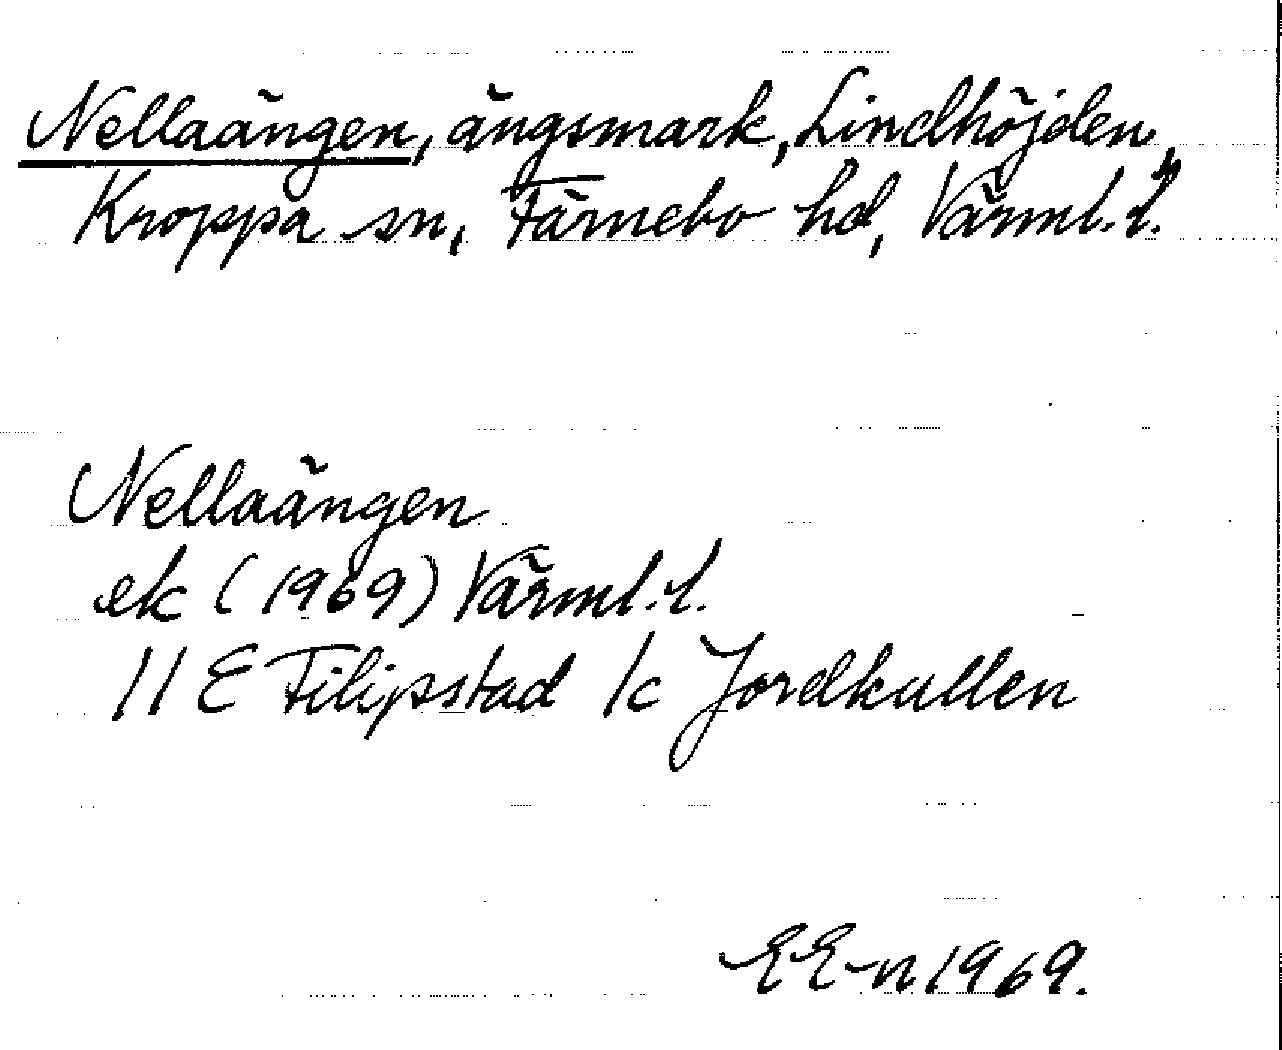 Nellaängen, ängsmark, Lindhöjden,
Kroppa sn, Färnebo hd, Värml. l.
Nellaängen
ek (1969) Värml. l.
11 E Filipstad 1c Jordkullen
EE-n 1969.